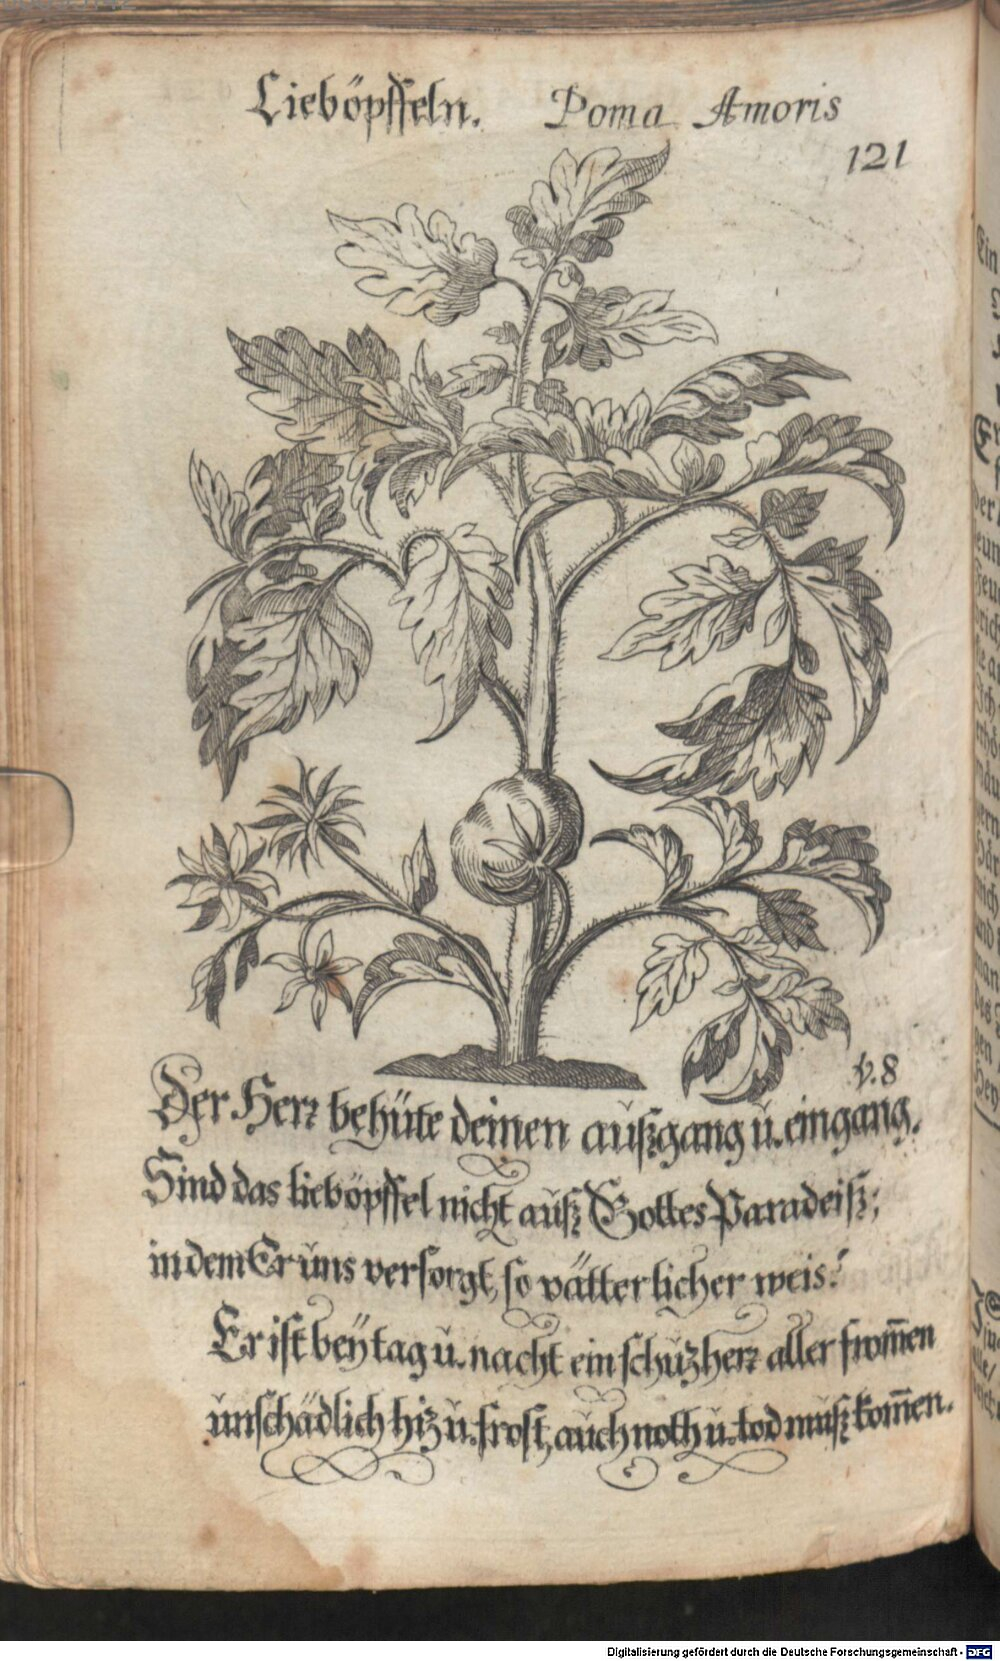 Lieböpffeln. Poma Amoris
121
v. 8
Der Herr behüte deinen außgang u. eingang.
Sind das lieböpffel nicht auß Gottes Paradeiß;
in dem Er uns versorgt, so vätterlicher weis?
Er ist bey tag u. nacht ein schuzherr aller from̅en
unschädlich hiz u. frost, auch noth u. tod muß kom̅en.
Digitalisierung gefördert durch die Deutsche Forschungsgemeinschaft - DFG